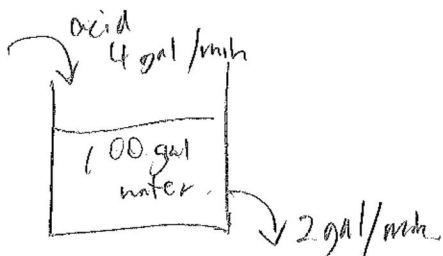 acid
4 gal/min
100 gal
water
2 gal/min